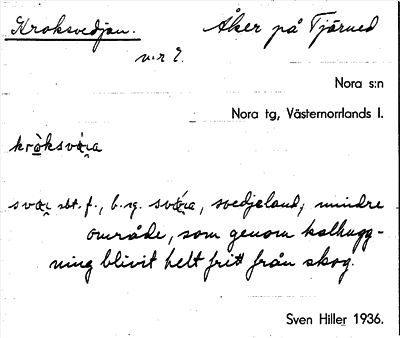 Kroksvedjan. Åker på Tjärned
n:r 2.
Nora s:n
Nora tg, Västernorrlands l.
svæ sbt. f., b.sg. , svedjeland, mindre
område, som genom kalhugg-
ning blivit helt fritt från skog.
Sven Hiller 1936.